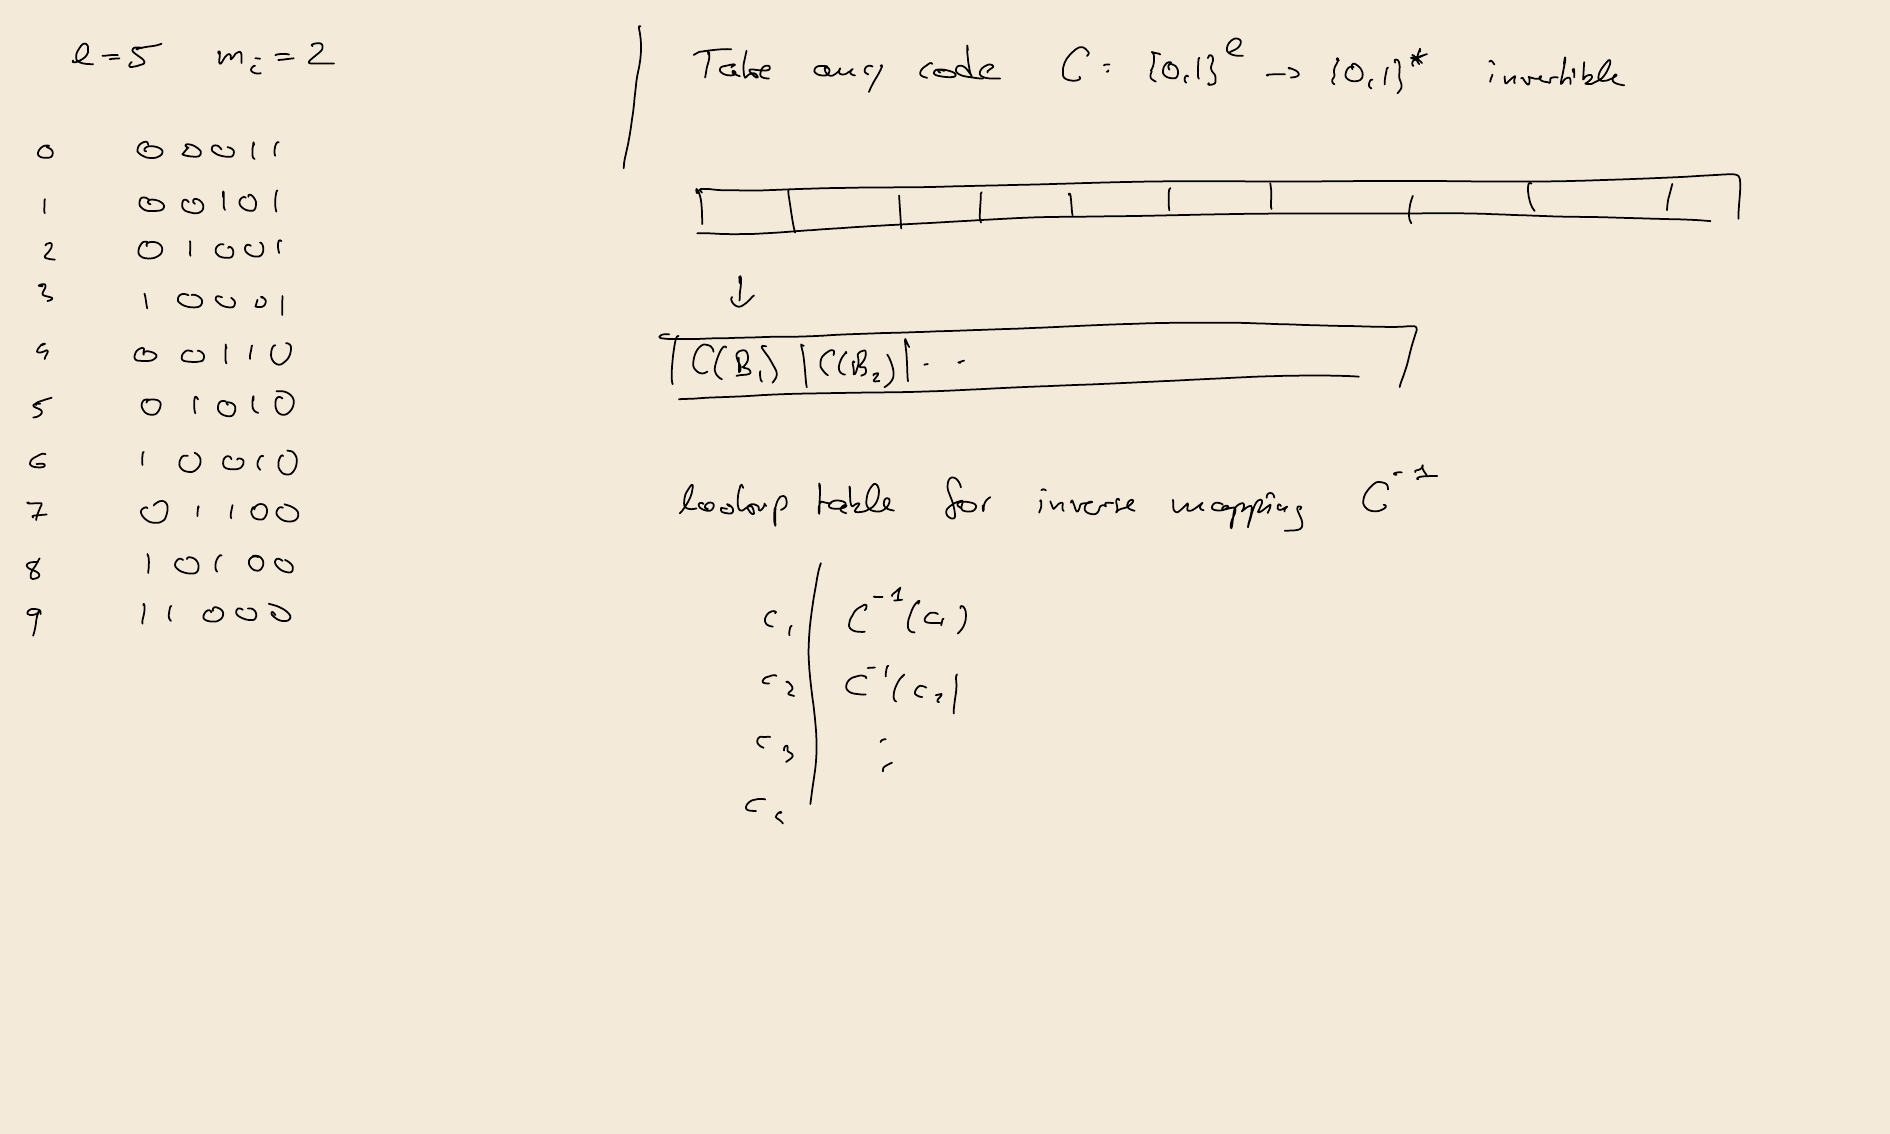 ℓ=5 mᵢ=2
0 00011
1 00101
2 01001
3 10001
4 00110
5 01010
6 10010
7 01100
8 10100
9 11000
Take any code C: {0,1}^ℓ -> {0,1}* invertible
↓
C(B₁) | C(B₂) | ...
lookup table for inverse mapping C⁻¹
c₁ | C⁻¹(c₁)
c₂ | C⁻¹(c₂)
c₃ | :
c₄